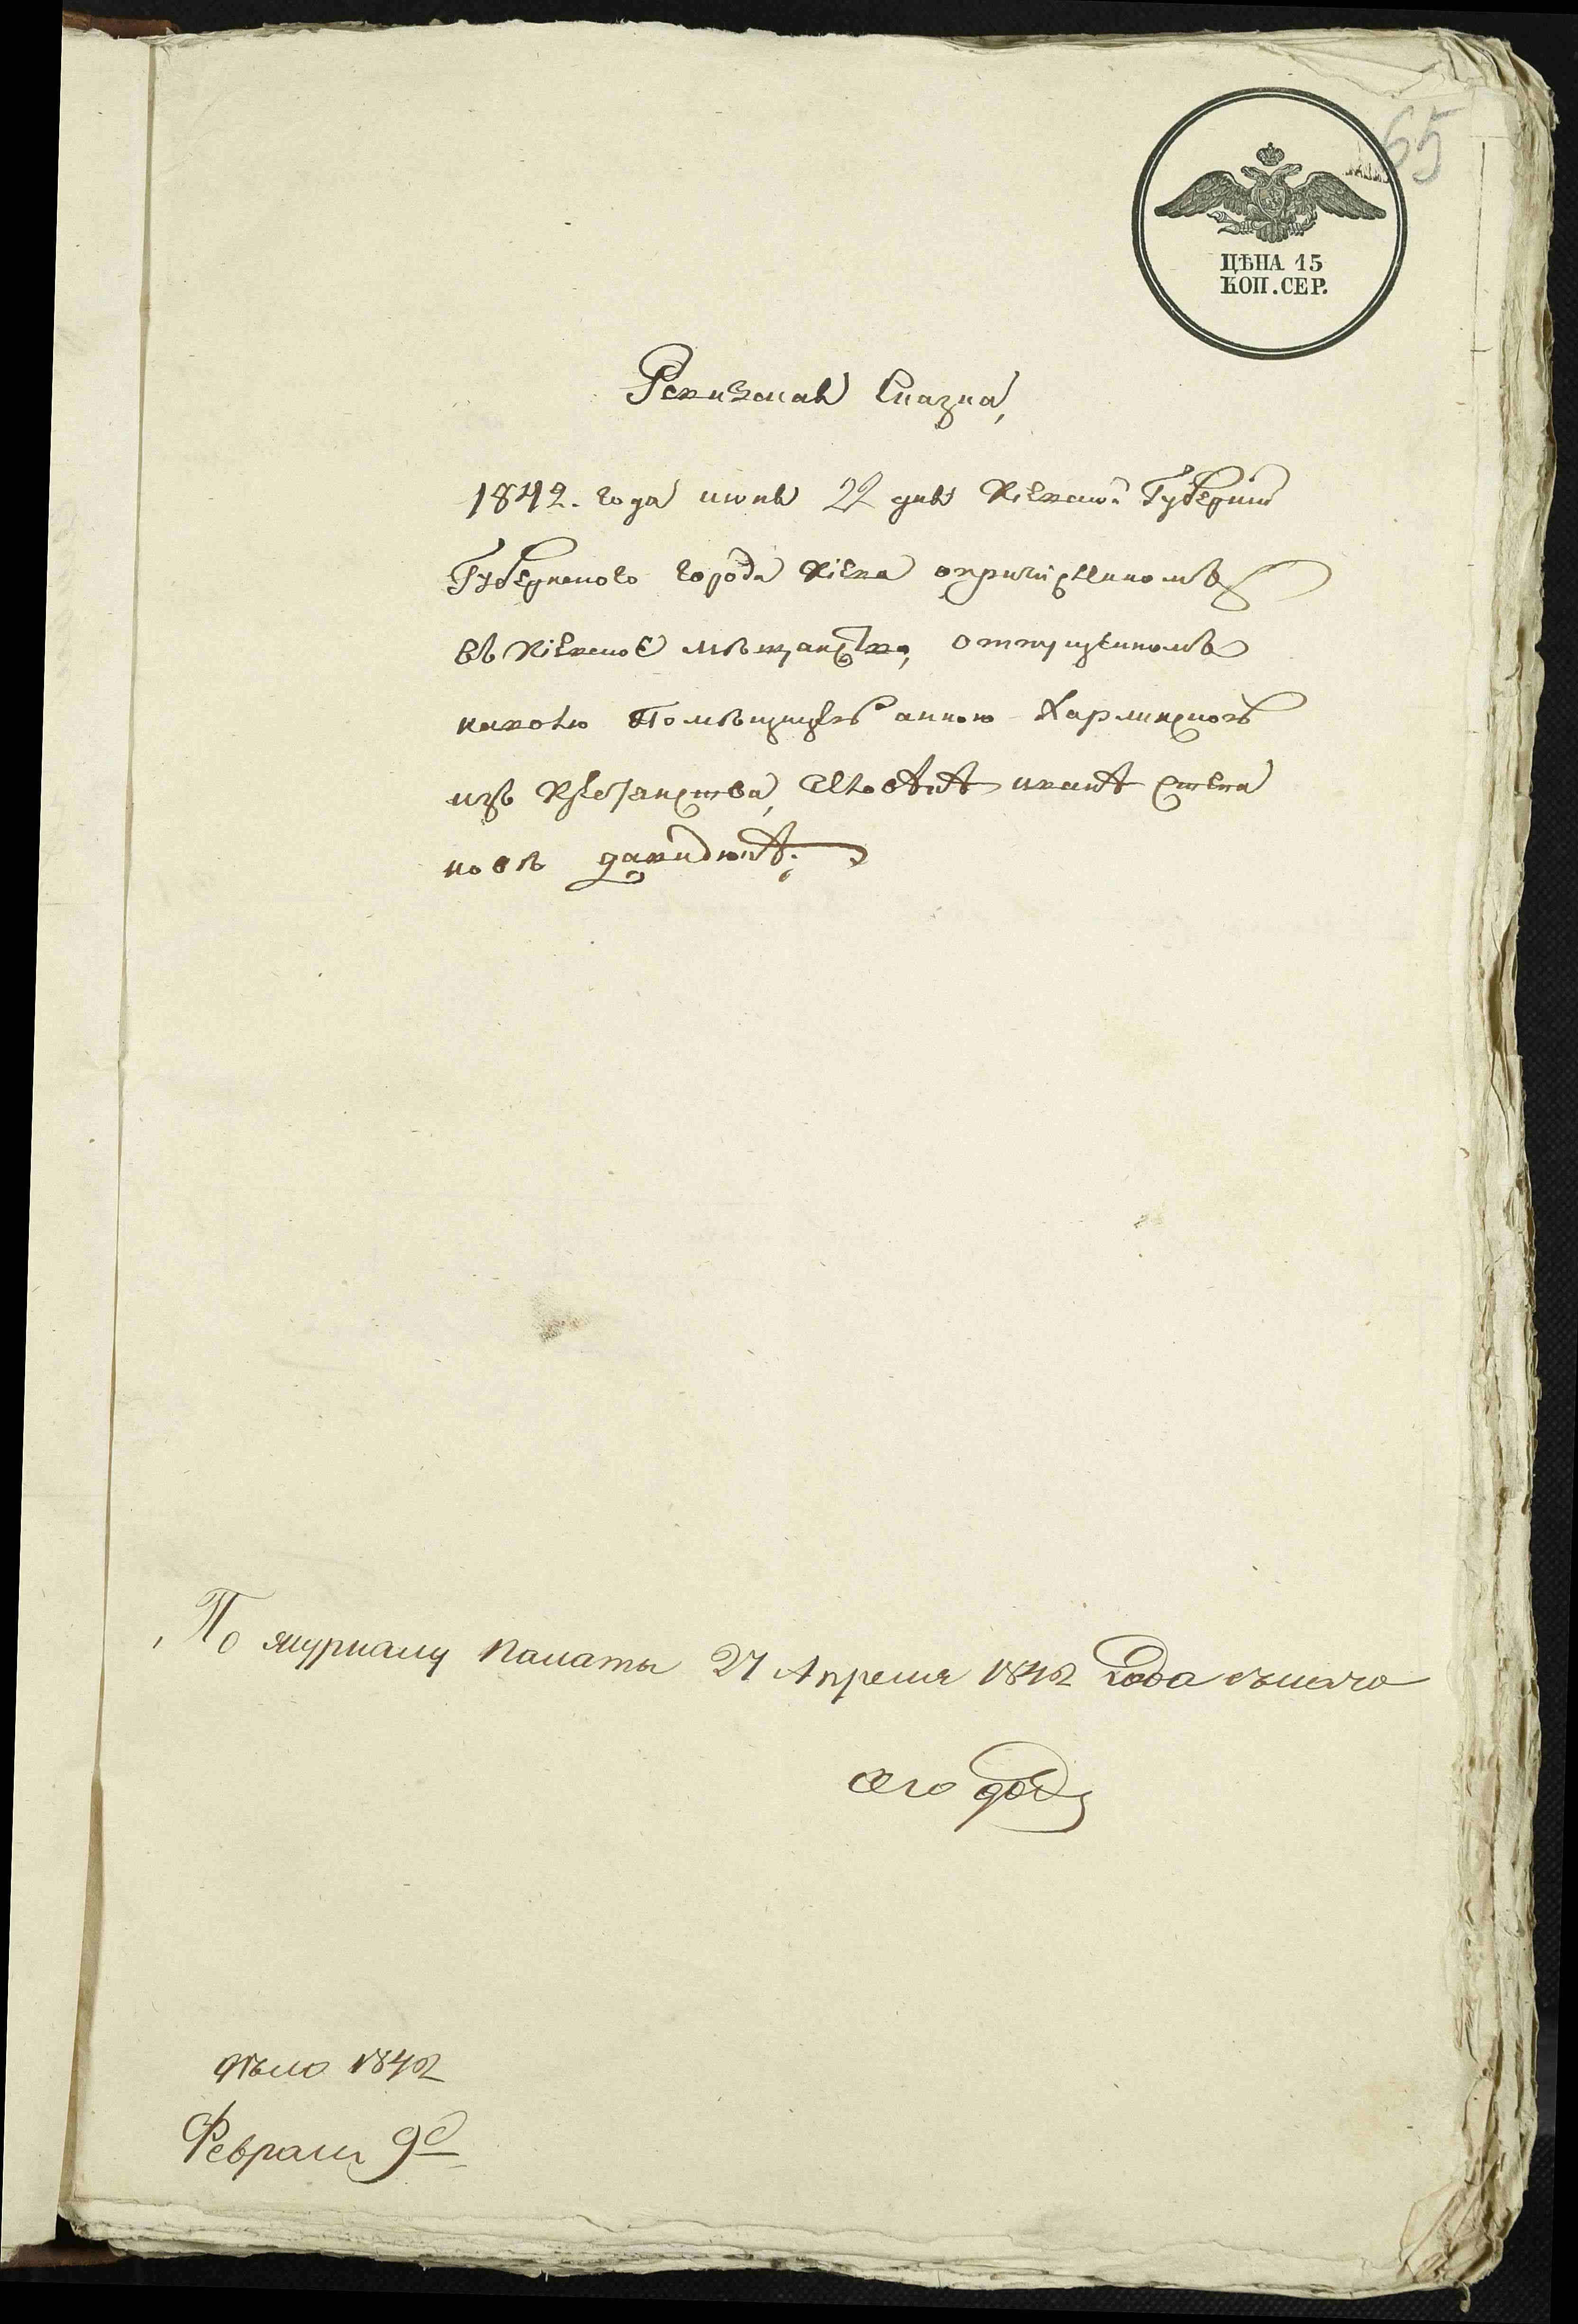 65
ЦѢНА 15
КОП. СЕР.
Ревизская Сказка,
1842. года июня 22 дня Кіевской Губерніи
Губернского города Кіева опричисленномъ
въ Кіевское мѣщанство, отпущенномъ
наволю Помѣщицею анною
изъ крестьянства, иване степа
новѣ
По журналу Палаты 27 Апреля 1842 года
сего года
дѣло 1842
Февраля 9